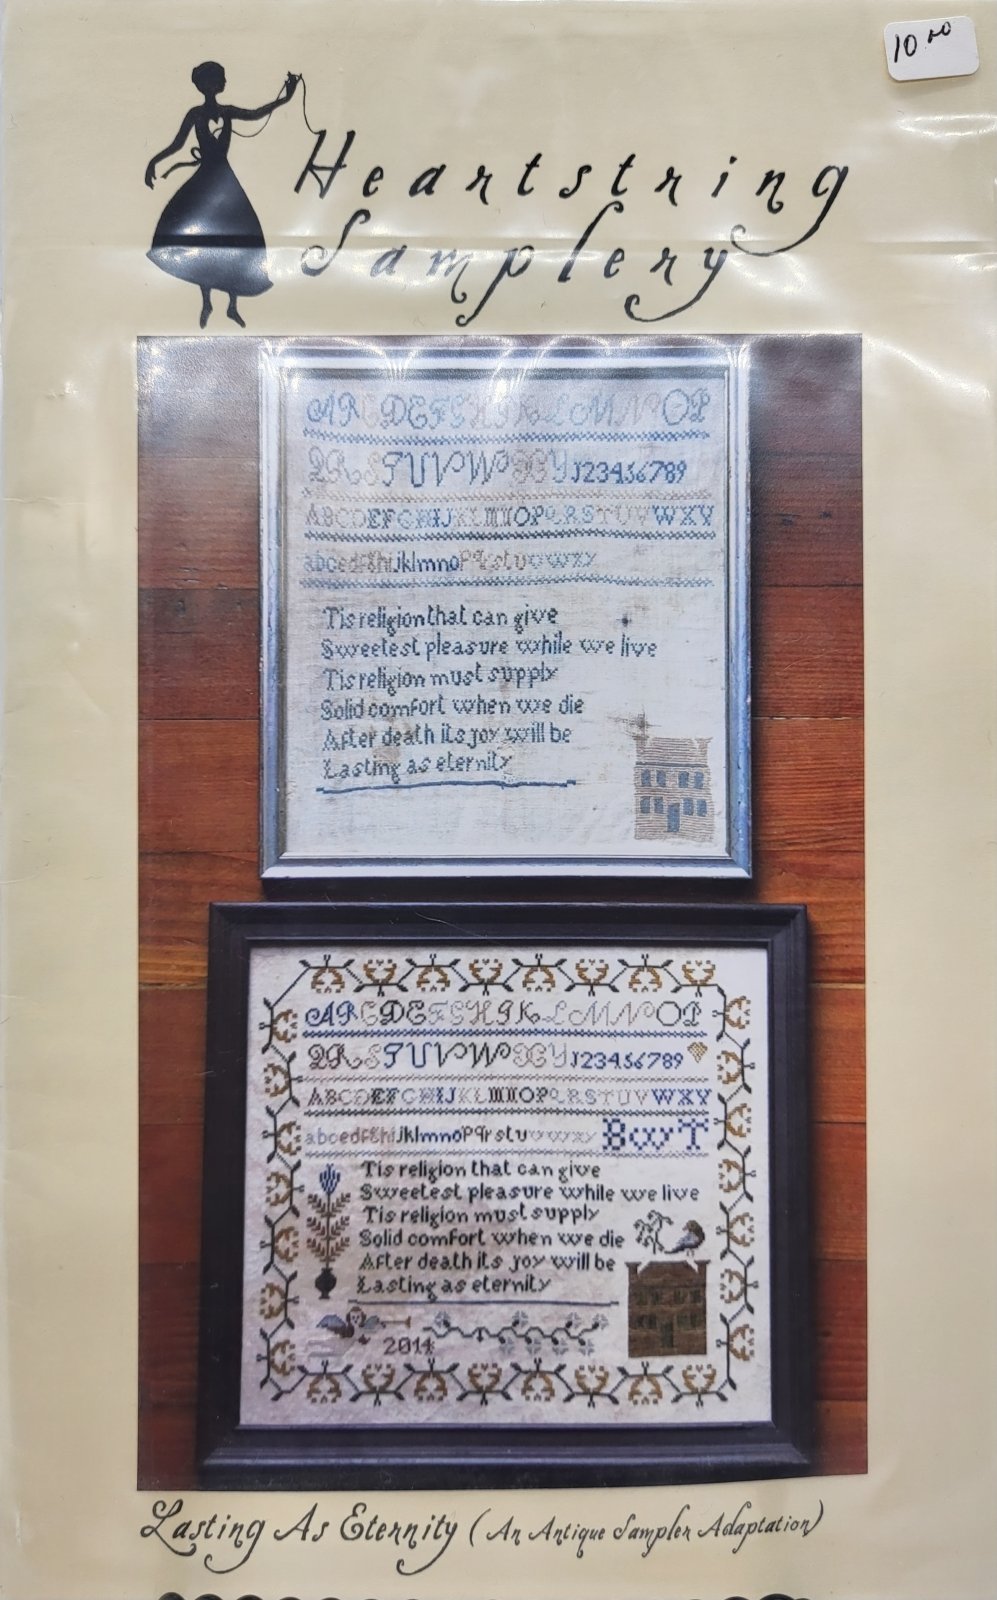 10.00
Heartstring
Samplery
ABCDEFGHIKLMNOP
QRSTUVWXY123456789
ABCDEFGHIJKLMNOPQRSTUVWXY
abcedfghijklmnopqrstuvwxy
Tis religion that can give
Sweetest pleasure while we live
Tis religion must supply
Solid comfort when we die
After death its joy will be
Lasting as eternity
ABCDEFGHIKLMNOP
QRSTUVWXY123456789
ABCDEFGHIJKLMNOPQRSTUVWXY
abcedfghijklmnopqrstuvwxy BWT
Tis religion that can give
Sweetest pleasure while we live
Tis religion must supply
Solid comfort when we die
After death its joy will be
Lasting as eternity
2014
Lasting As Eternity (An Antique Sampler Adaptation)